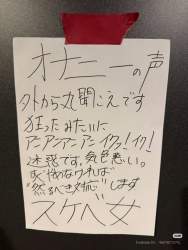 オナニーの声
外から丸聞こえです
狂ったみたいに
アンアンアンアンイクッ!イク!
迷惑です。気色悪い。
改善なければ
然るべき対応します
スケベ女